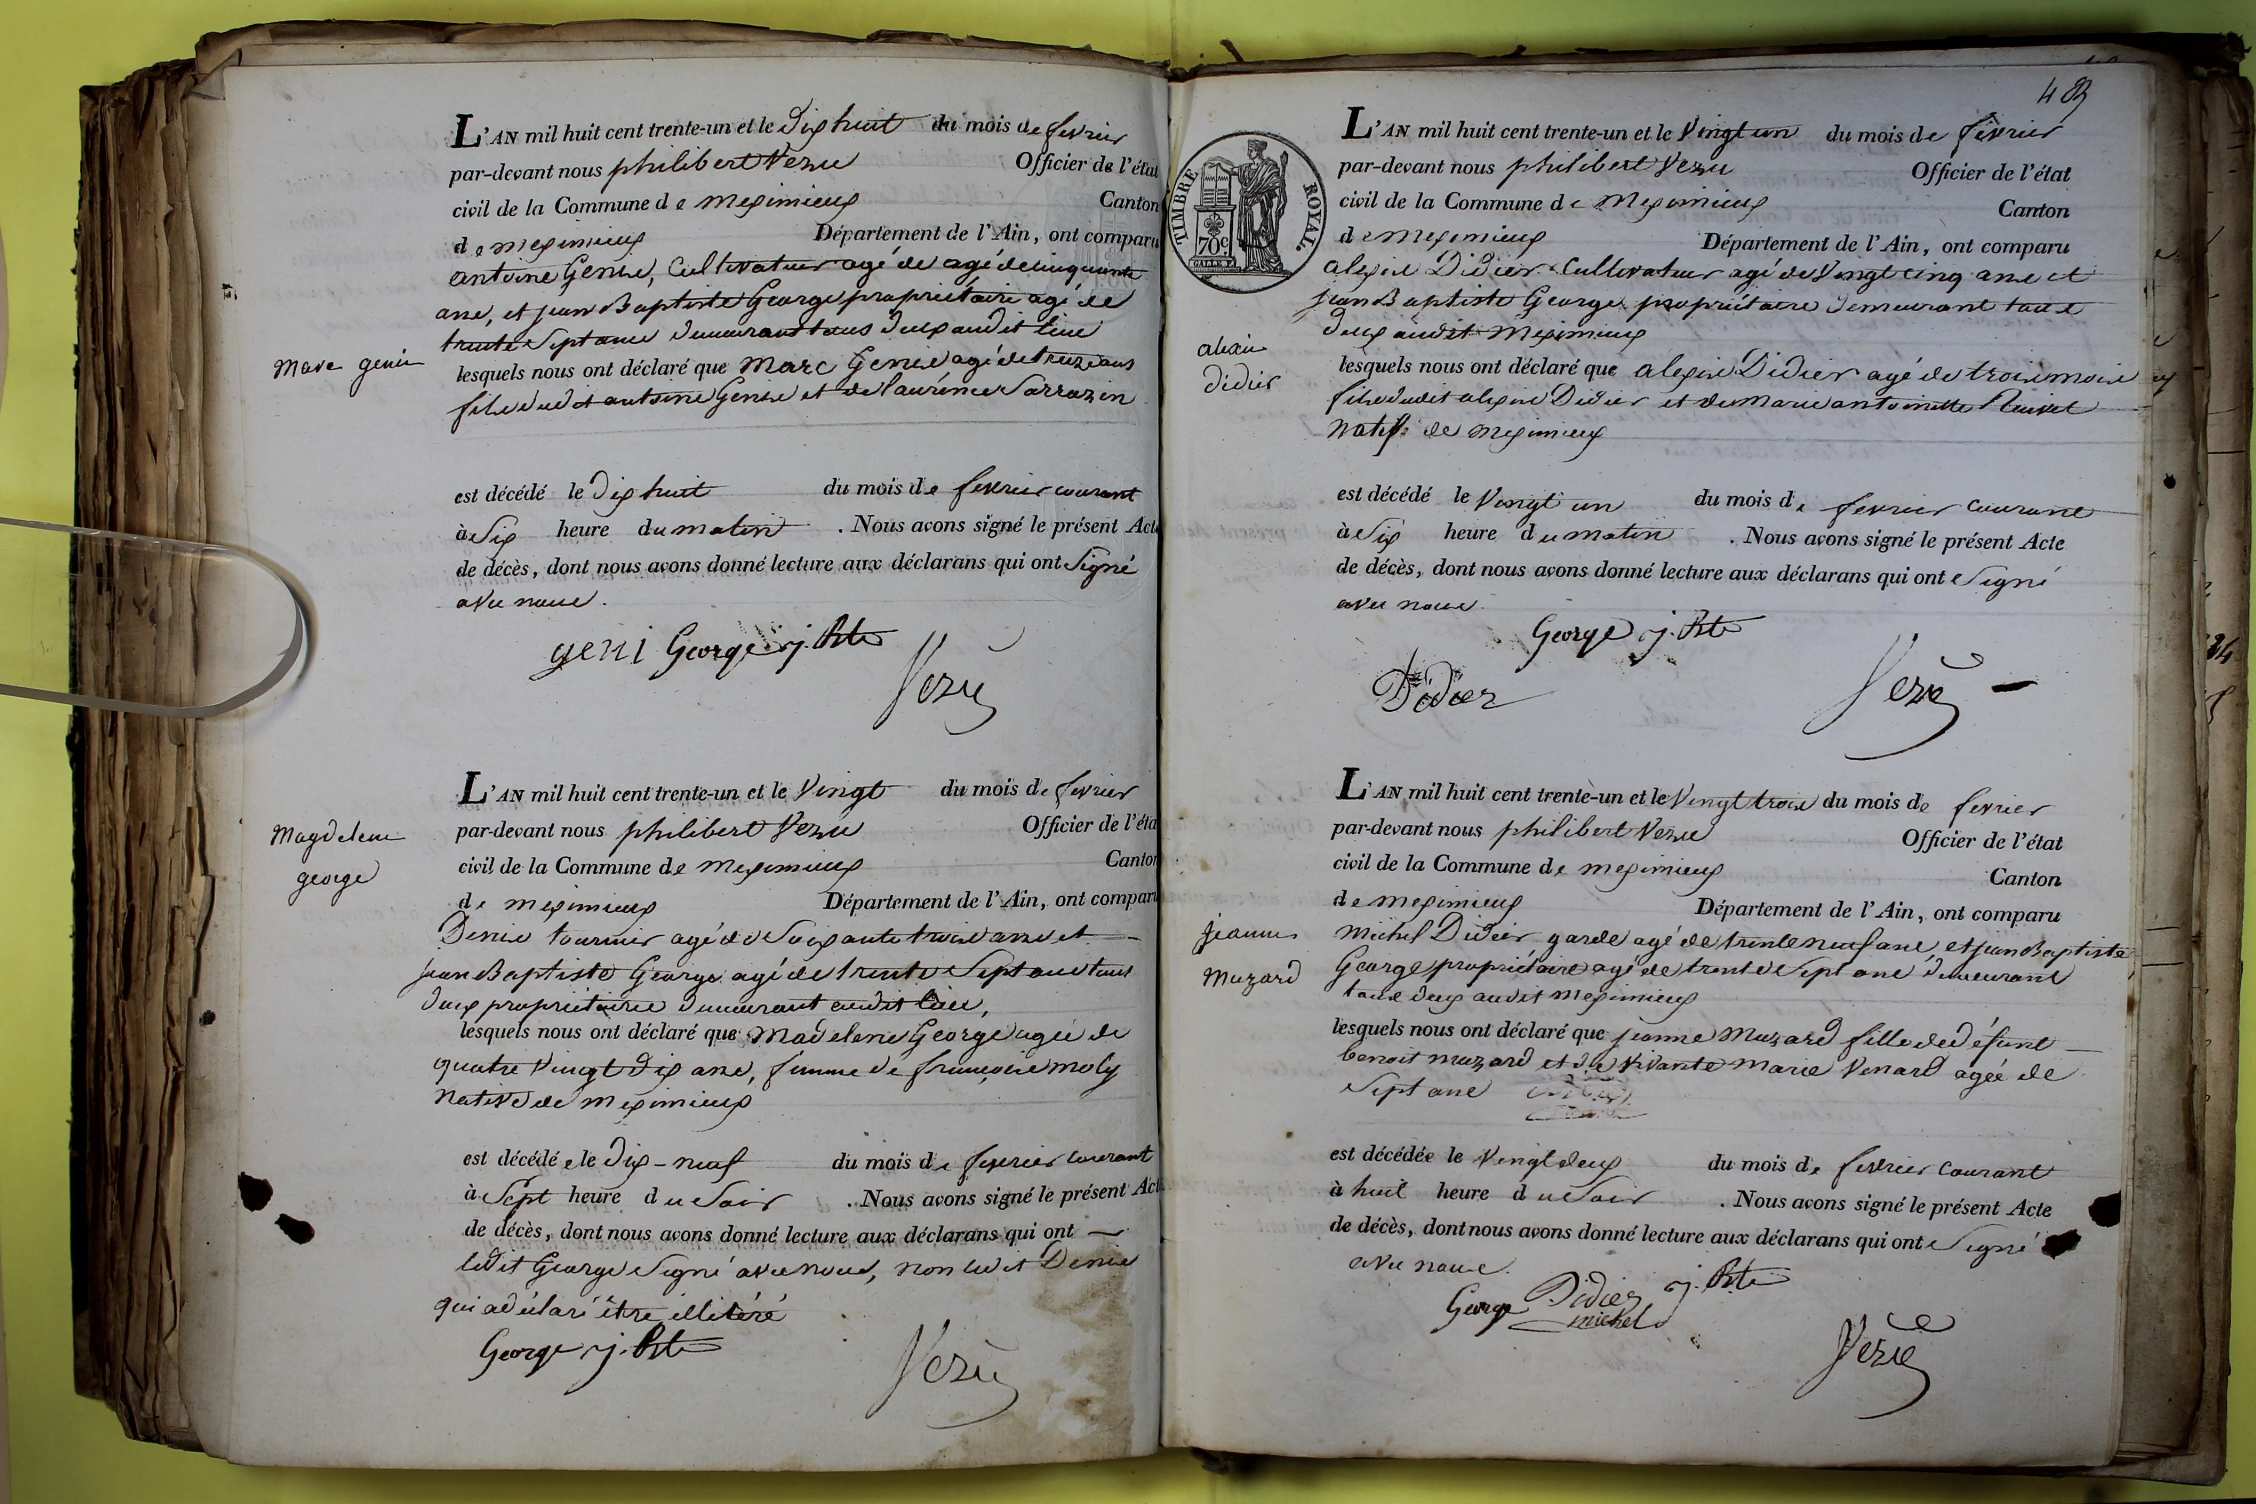 L'AN mil huit cent trente-un et le dix huit du mois de fevrier
par-devant nous philibert Vezu Officier de l'état
civil de la Commune de meximieux Canton
de meximieux Département de l'Ain, ont comparu
antoine Genis, Cultivateur agé de agé de cinquante
ans, et jean Baptiste George propriétaire agé de
trente Sept ans demeurant tous deux audit lieu
marc genis
lesquels nous ont déclaré que Marc Genis agé de treize ans
fils dudit antoine Genis et de laurence Sarrazin
est décédé le dix huit du mois de fevrier courant
à Six heure du matin . Nous avons signé le présent Acte
de décès, dont nous avons donné lecture aux déclarans qui ont Signé
avec nous.
geni George j. Bte
Vezu
L'AN mil huit cent trente-un et le Vingt du mois de fevrier
Magdeleine
george
par-devant nous philibert Vezu Officier de l'éta
civil de la Commune de meximieux Canton
de meximieux Département de l'Ain, ont comparu
Denis tournier agé de Soixante trois ans et
jean Baptiste George agé de trente Sept ans tous
deux propriétaires demeurant audit lieu,
lesquels nous ont déclaré que Madelene George agée de
quatre Vingt dix ans, femme de françois moly
native de meximieux
est décédée le dix-neuf du mois de fevrier courant
à Sept heure du Soir . Nous avons signé le présent Act
de décès, dont nous avons donné lecture aux déclarans qui ont
ledit George Signé avec nous, non ledit Denis
qui a déclaré être illitéré
George j. Bte
Vezu
483
TIMBRE ROYAL.
70c
L'AN mil huit cent trente-un et le Vingt un du mois de fevrier
par-devant nous philibert Vezu Officier de l'état
civil de la Commune de Meximieux Canton
de meximieux Département de l'Ain, ont comparu
alexis Didier Cultivateur agé de Vingt cinq ans et
jean Baptiste George propriétaire demeurant tous
deux audit Meximieux
alexis
didier
lesquels nous ont déclaré que alexis Didier agé de trois mois
fils dudit alexis Didier et de Marie antoinette
natif de meximieux
est décédé le Vingt un du mois de fevrier courant
à Six heure du matin . Nous avons signé le présent Acte
de décès, dont nous avons donné lecture aux déclarans qui ont Signé
avec nous.
George j. Bte
Didier Vezu
L'AN mil huit cent trente-un et le Vingt trois du mois de fevrier
par-devant nous philibert Vezu Officier de l'état
civil de la Commune de meximieux Canton
de meximieux Département de l'Ain, ont comparu
jeanne
Muzard
Michel Didier garde agé de trente neuf ans, et jean Baptiste
George propriétaire agé de trente Sept ans demeurant
tous deux audit meximieux
lesquels nous ont déclaré que jeanne Muzard fille de défunt
benoit muzard et de Vivante Marie Venard agée de
Sept ans
est décédée le Vingt deux du mois de fevrier courant
à huit heure du Soir . Nous avons signé le présent Acte
de décès, dont nous avons donné lecture aux déclarans qui ont Signé
avec nous.
George Didier j. Bte
michel
Vezu